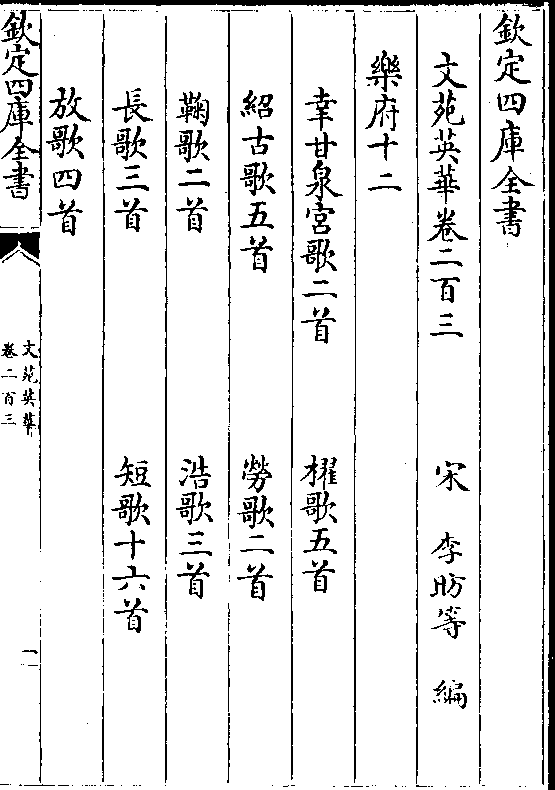 欽定四庫全書
文苑英華卷二百三　宋　李昉等　編
樂府十二
幸甘泉宮歌二首　櫂歌五首
紹古歌五首　勞歌二首
鞠歌二首　浩歌三首
長歌三首　短歌十六首
放歌四首
欽定四庫全書
文苑英華
卷二百三
一